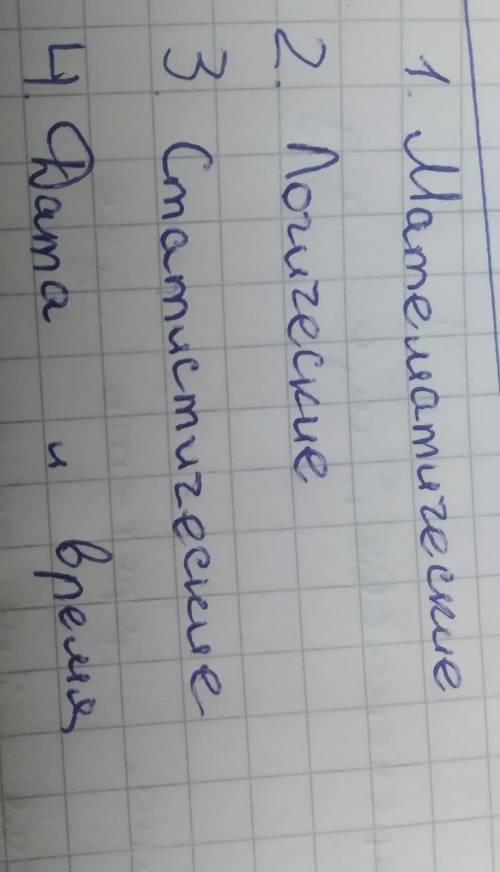 1. Математические
2. Логические
3. Статистические
4. Дата и время